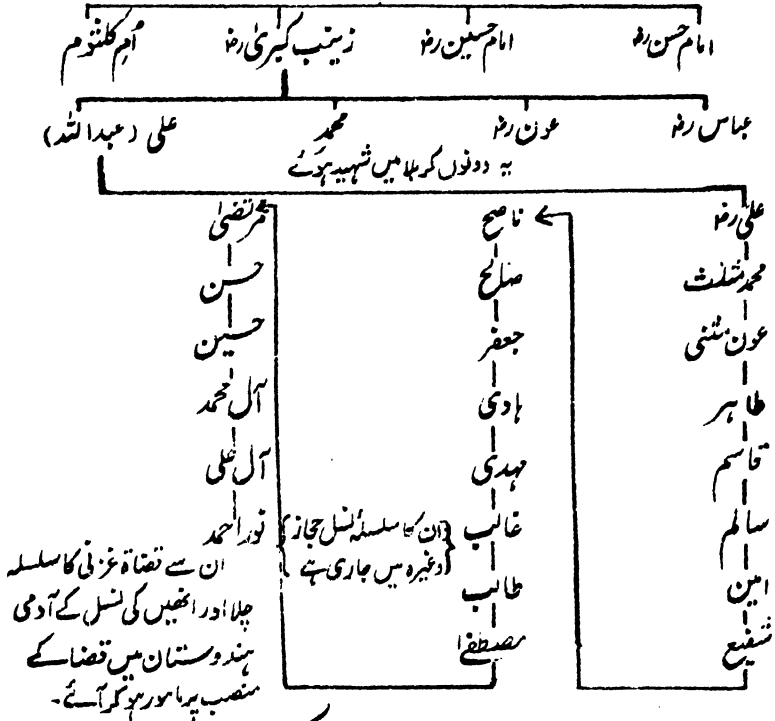 امام حسن رضؓ امام حسین رضؓ زینب کبریٰ رضؓ اُمِ کلثوم
عباس رضؓ عون رضؓ محمد علی (عبداللہ)
یہ دونوں کربلا میں شہید ہوئے
علی رضؓ
محمد مثلث
عون مثنی
طاہر
قاسم
سالم
امین
شفیع
ناصح
صالح
جعفر
ہادی
مہدی
غالب
طالب
مصطفےٰ
{ان کا سلسلۂ نسل حجاز
وغیرہ میں جاری ہے}
مرتضیٰ
حسن
حسین
آل محمد
آل علی
نور احمد
ان سے قضاۃ غزنی کا سلسلہ
چلا اور انھیں کی نسل کے آدمی
ہندوستان میں قضا کے
منصب پر مامور ہو کر آئے۔